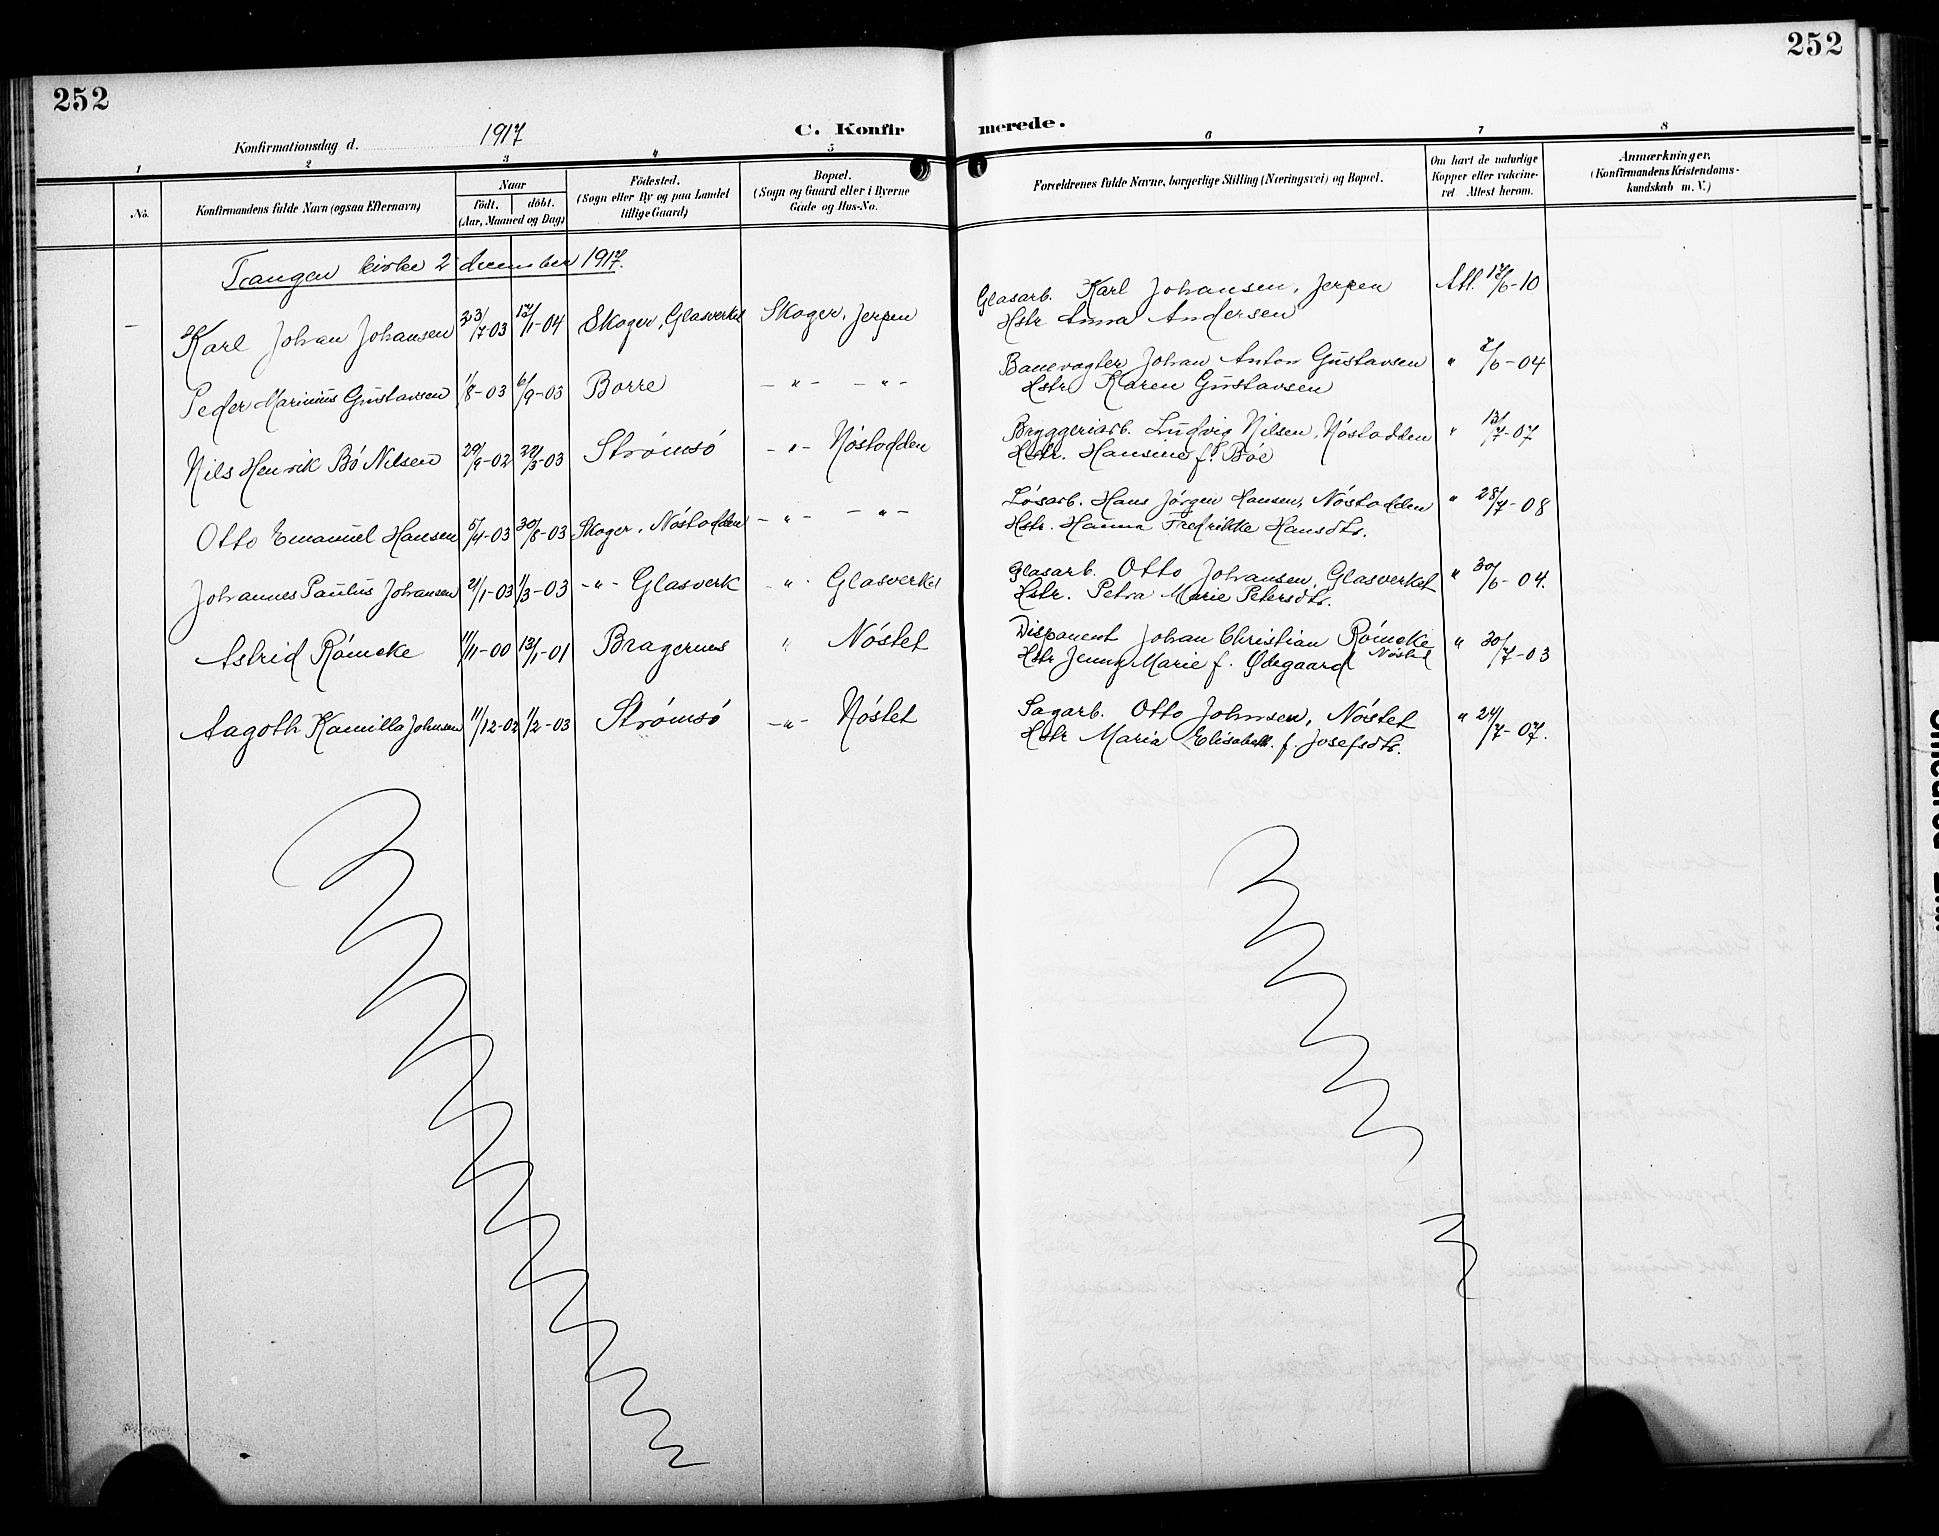 252
252
Konfirmationsdag d. 1917
C. Konfirmerede.
1 2 3 4 5 6 7 8
No.
Konfirmandens fulde Navn (ogsaa Efternavn)
Naar
født. døbt.
(Aar, Maaned og Dag)
Fødested.
(Sogn eller By og paa Landet
tillige Gaard)
Bopæl.
(Sogn og Gaard eller i Byerne
Gade og Hus-No.
Forældrenes fulde Navne, borgerlige Stilling (Næringsvei) og Bopæl.
Om havt de naturlige
Kopper eller vakcine-
ret Attest herom.
Anmærkninger.
(Konfirmandens Kristendoms-
kundskab m. V.)
Tangen kirke 2 december 1917.
Karl Johan Johansen 23/7-03 17/1-04 Skoger, Glasverket Skoger, Jerpen Glasarb. Karl Johansen, Jerpen Att. 17/6-10
Hstr Anna Andersen
Peder Marinius Gustavsen 1/8-03 6/9-03 Borre -"- -"- Banevogter Johan Anton Gustavsen " 7/6-04
Hstr Karen Gustavsen
Nils Henrik Bö Nilsen 29/9-02 22/3-03 Strömsö -"- Nöstodden Bryggeriarb. Ludvig Nilsen, Nöstodden " 13/7-07
Hstr. Hansine f. Böe
Otto Emanuel Hansen 5/4-03 30/8-03 Skoger, Nöstodden -"- -"- Lösarb. Hans Jörgen Hansen, Nöstodden " 28/7-08
Hstr. Hanna Fredrikke Hansdtr.
Johannes Paulus Johansen 21/1-03 1/3-03 -"- Glasverk -"- Glasverket Glasarb. Otto Johansen, Glasverket " 30/6-04.
Hstr. Petra Marie Petersdtr.
Astrid Römcke 11/11-00 13/1-01 Bragernes " Nöstet Disponent Johan Christian Römcke " 30/7-03
Hstr Jenny Marie f. Ødegaard Nöstet
Aagoth Kamilla Johnsen 11/12-02 1/2-03 Strömsö -"- Nöstet Sagarb. Otto Johnsen, Nöstet " 24/7-07.
Hstr Maria Elisabeth f. Josefsdtr.